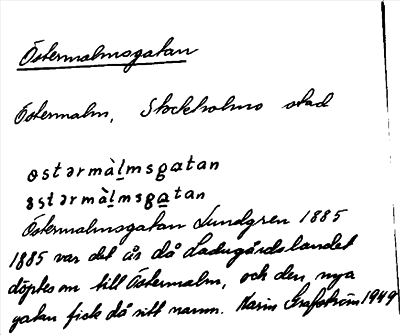 Östermalmsgatan
Östermalm, Stockholms stad
østərmàl̲msgatan
østərmàl̲msga̲tan
Östermalmsgatan Lundgren 1885
1885 var det år då Ladugårdslandet
döptes om till Östermalm, och den nya
gatan fick då sitt namn. Karin Grafström 1949